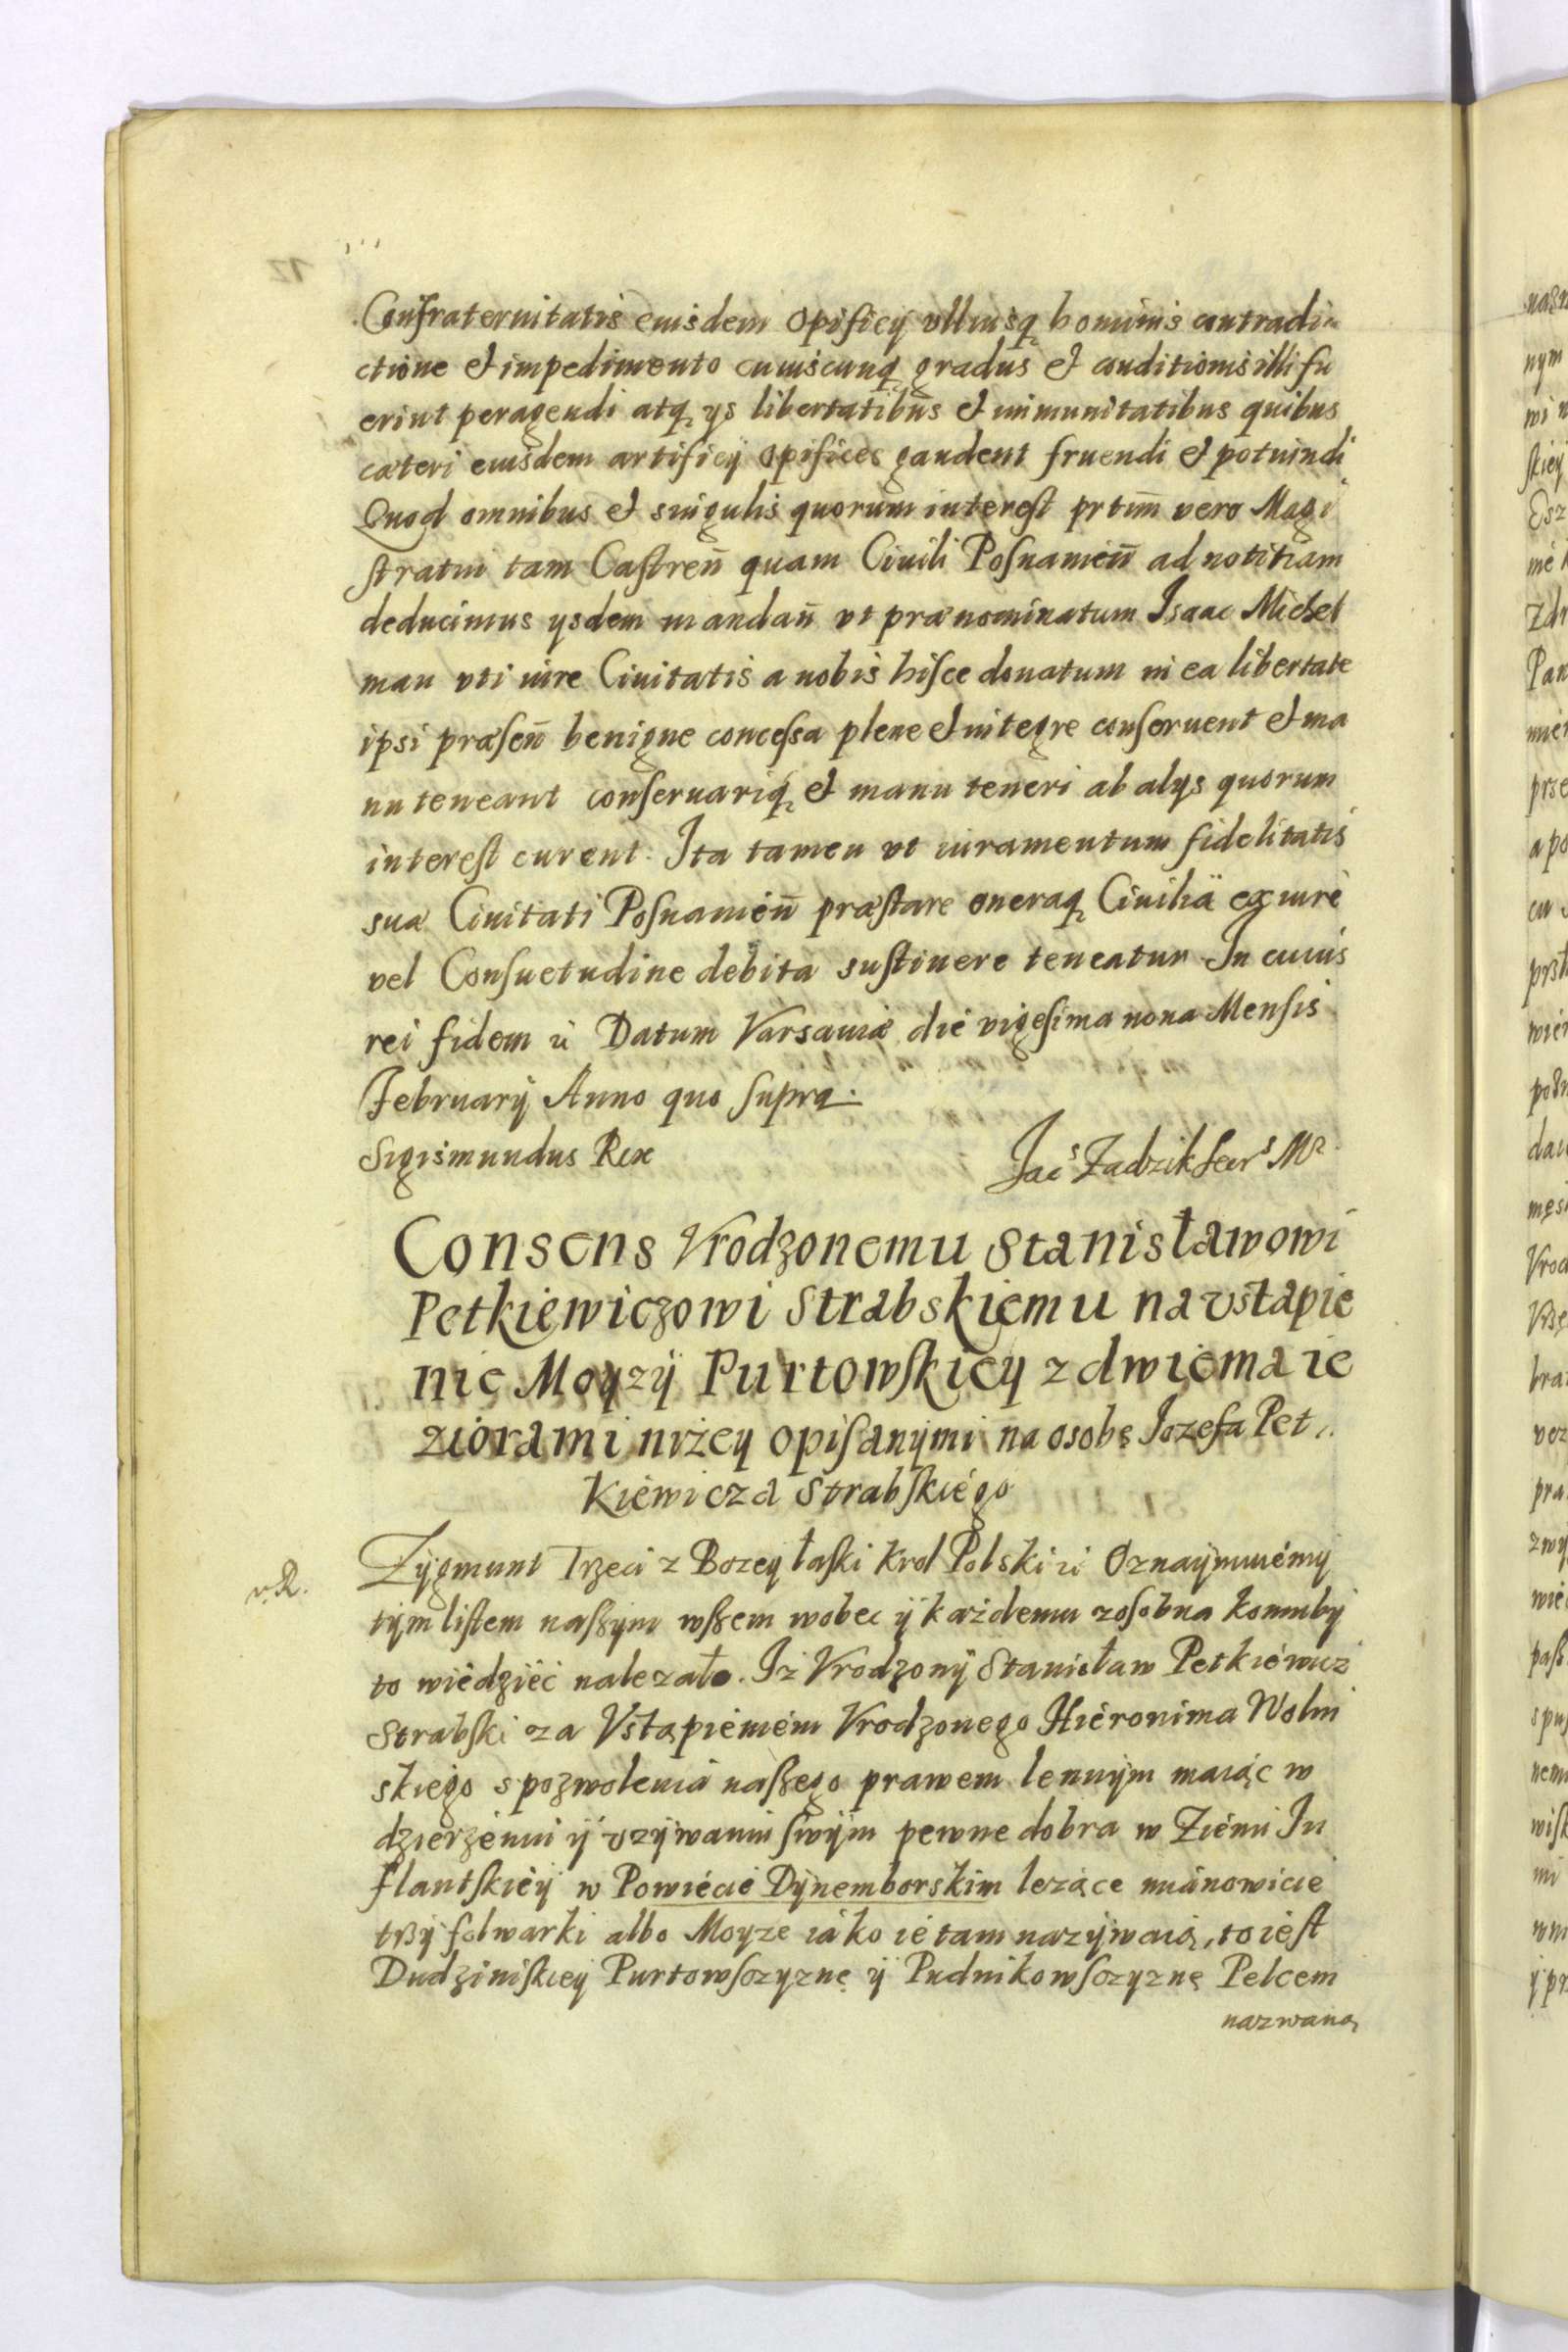 Confraternitatis eiusdem opificÿ ullius̃q hominis contradi=
ctione et impedimento cuiuscunq gradus et conditionis illi fu
erint peragendi atq ys libertatibus et immunitatibus quibus
cæteri eiusdem artificÿ opifices gaudent fruendi et potiundi
Quod omnibus et singulis quorum interest prtim̃ vero Magi
stratui tam Castren̄ quam Ciuili Posnamen̄ ad notitiam
deducimus ysdem mandan̄ vt prænominatum Isaac Michel
man vti iure Ciuitatis a nobis hisce donatum in ea libertate
ipsi præsen̄ benigne concessa plene et integre conseruent et ma
nu teneant conseruariq et manu teneri ab alys quorum
interest curent. Ita tamen vt iuramentum fidelitatis
suæ Ciuitati Posnamen̄ præstare oneraq Ciuilia ex iure
vel Consuetudine debita sustinere teneatur. In cuius
rei fidem ȕ Datum Varsauiæ die vigesima nona Mensis
Februarÿ Anno quo supra.
Sigismundus Rex
Jacs Zadzik Secrs Mr
Consens Vrodzonemu Stanisławowi
Petkiewiczowi Strabskiemu na vstąpie
nie Moyzÿ Purtowskiey z dwiema ie
ziorami niżey opisanÿmi na osobę Jozefa Pet,,
kiewicza Strabskiego
v.R.
Zÿgmunt Trzeci z Bozey łaski Krol Polski ıı Oznaÿmuiemÿ
tÿm listem naszÿm wszem wobec ÿ każdemu zosobna komubÿ
to wiedzieć nalezało. Iz Vrodzonÿ Stanisław Petkiewicz
Strabski za Vstąpieniem Vrodzonego Hieronima Wolm
skiego s pozwolenia naszego prawem lennÿm maiąc w
dzierzeniu ÿ vzÿwaniu swÿm pewne dobra w Ziemi In
flantskieÿ w Powiecie Dÿnemborskim leząće mianowicie
trzÿ folwarki albo Moyze iako ie tam nazÿwaią, to iest
Dudziniskieÿ Purtowsczyznę ÿ Pudnikowsczyznę Pelcem
nazwaną